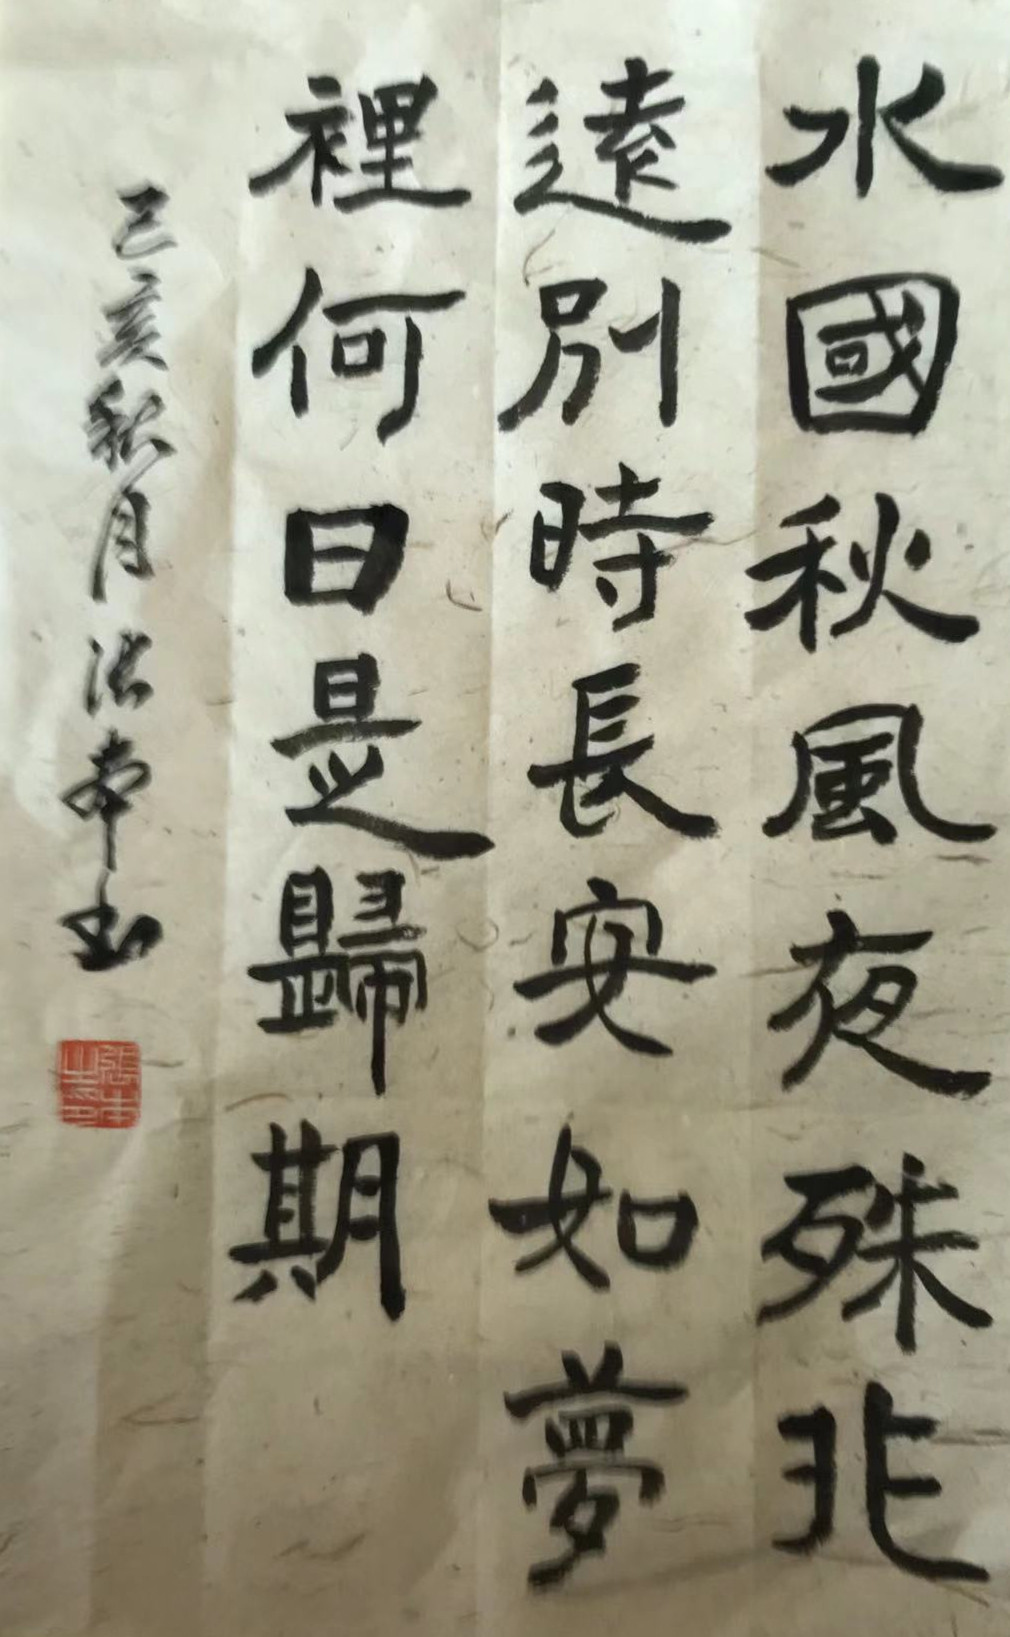 水國秋風夜殊非
遠別時長安如夢
裡何日是歸期
己亥秋月張本書